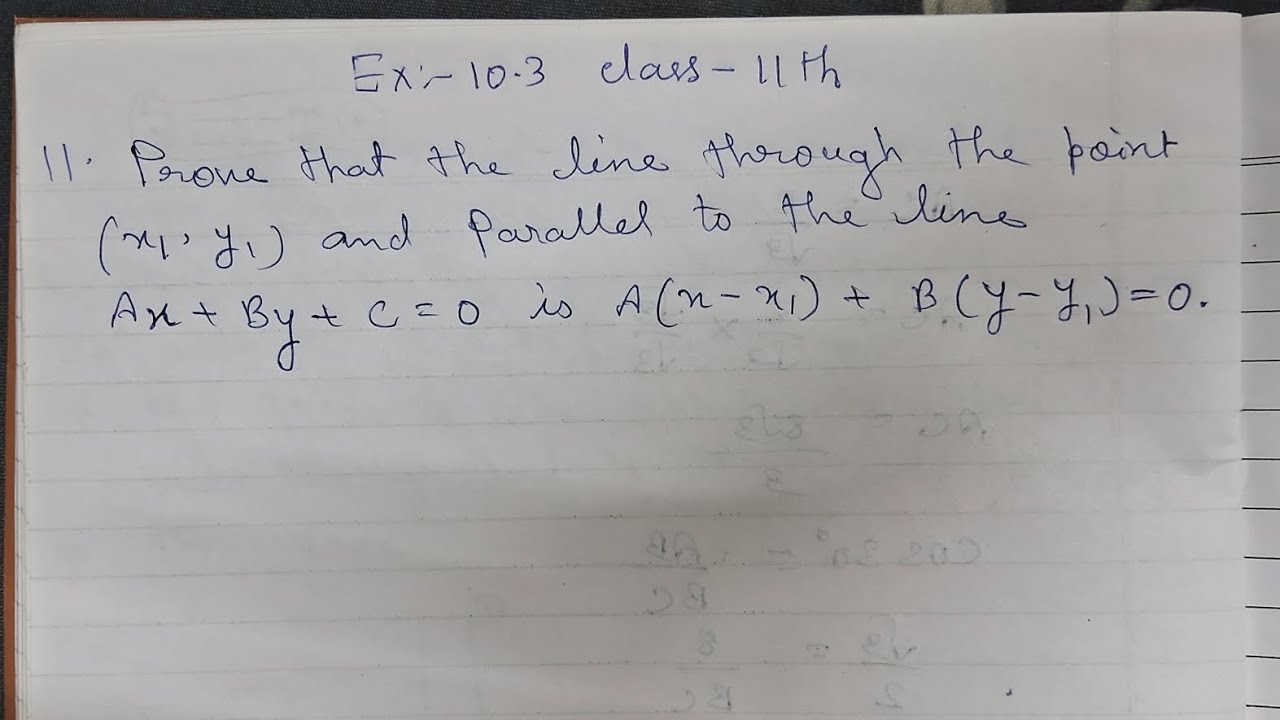 Ex:- 10.3 class - 11th
11. Prove that the line through the point
(x1, y1) and parallel to the line
Ax + By + C = 0 is A(x - x1) + B(y - y1) = 0.